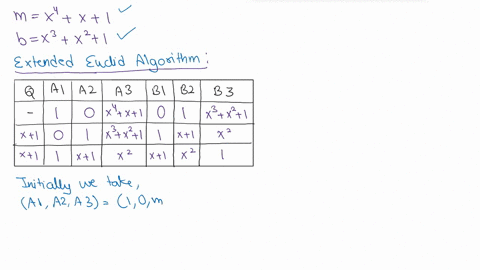 m = x⁴ + x + 1 ✓
b = x³ + x² + 1 ✓
Extended Euclid Algorithm :
Q A1 A2 A3 B1 B2 B3
- 1 0 x⁴+x+1 0 1 x³+x²+1
x+1 0 1 x³+x²+1 1 x+1 x²
x+1 1 x+1 x² x+1 x² 1
Initially we take,
(A1, A2, A3) = (1, 0, m